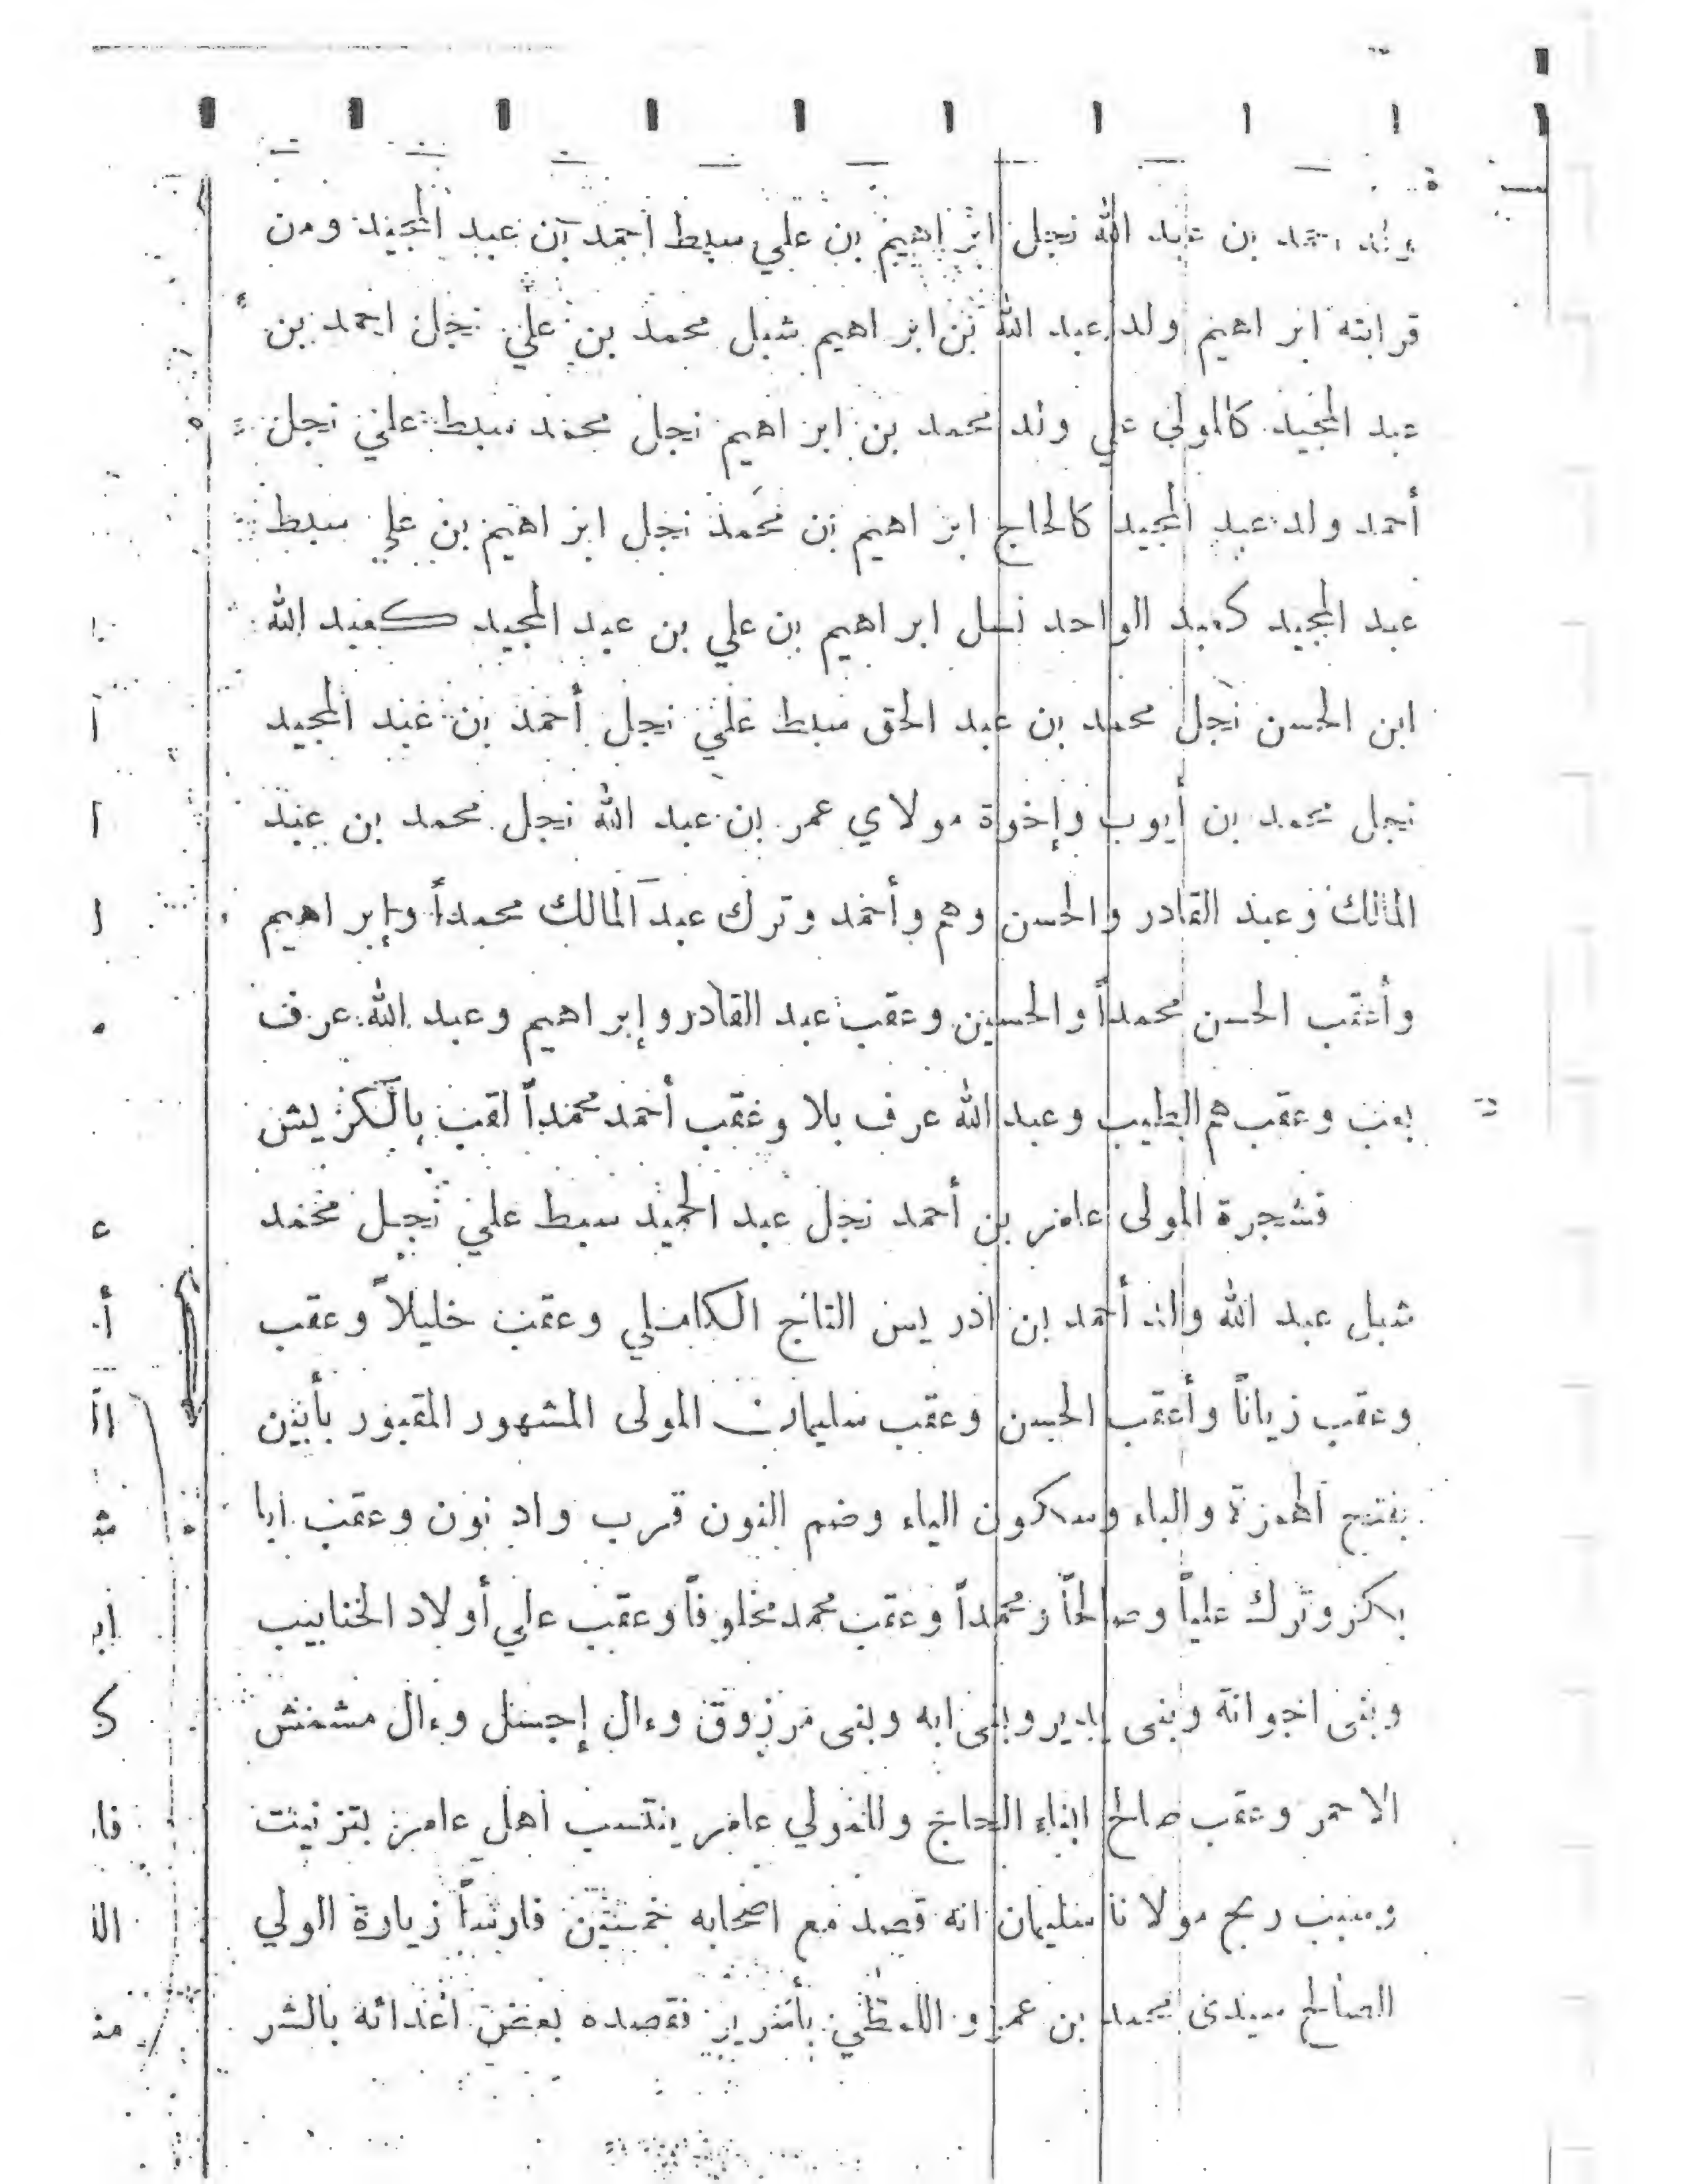 ولد احمد بن عبد الله نجل ابراهيم بن علي سبط احمد بن عبد المجيد ومن
قرابته ابراهيم ولد عبد الله بن ابراهيم شبل محمد بن علي نجل احمد بن
عبد المجيد كالمولى علي ولد محمد بن ابراهيم نجل محمد سبط علي نجل
أحمد ولد عبد المجيد كالحاج ابراهيم بن محمد نجل ابراهيم بن علي سبط
عبد المجيد كعبد الواحد نسل ابراهيم بن علي بن عبد المجيد كعبد الله
ابن الحسن نجل محمد بن عبد الحق سبط علي نجل أحمد بن عبد المجيد
نجل محمد بن أيوب وإخوة مولاي عمر بن عبد الله نجل محمد بن عبد
المالك وعبد القادر والحسن وهم وأحمد وترك عبد المالك محمداً وإبراهيم
وأعقب الحسن محمداً والحسين وعقب عبد القادر وإبراهيم وعبد الله عرف
وعقب هم الطيب وعبد الله عرف بلا وعقب أحمد محمداً لقب بالكريش
فشجرة المولى عامر بن أحمد نجل عبد الحميد سبط علي نجل محمد
شبل عبد الله والد أحمد بن ادريس التاج الكاملي وعقب خليلاً وعقب
وعقب زياناً وأعقب الحسن وعقب سليمان المولى المشهور المقبور بأبين
بفتح الهمزة والباء وسكون الياء وضم النون قرب واد نون وعقب ابا
بكر وترك علياً وصالحاً ومحمداً وعقب محمد مخلوفاً وعقب علي أولاد الخنابيب
وبنى اجوانة وبنى يدير وبنى ابه وبنى مرزوق وءال إجسل وءال مشمش
الاحمر وعقب صالح ابناء الحاج وللمولى عامر ينتسب اهل عامر بتزنيت
وسبب ربح مولانا سليمان انه قصد مع اصحابه خمسين فارساً زيارة الولي
الصالح سيدى محمد بن عمرو اللمطي بأسرير فقصده بعض اعدائه بالشر